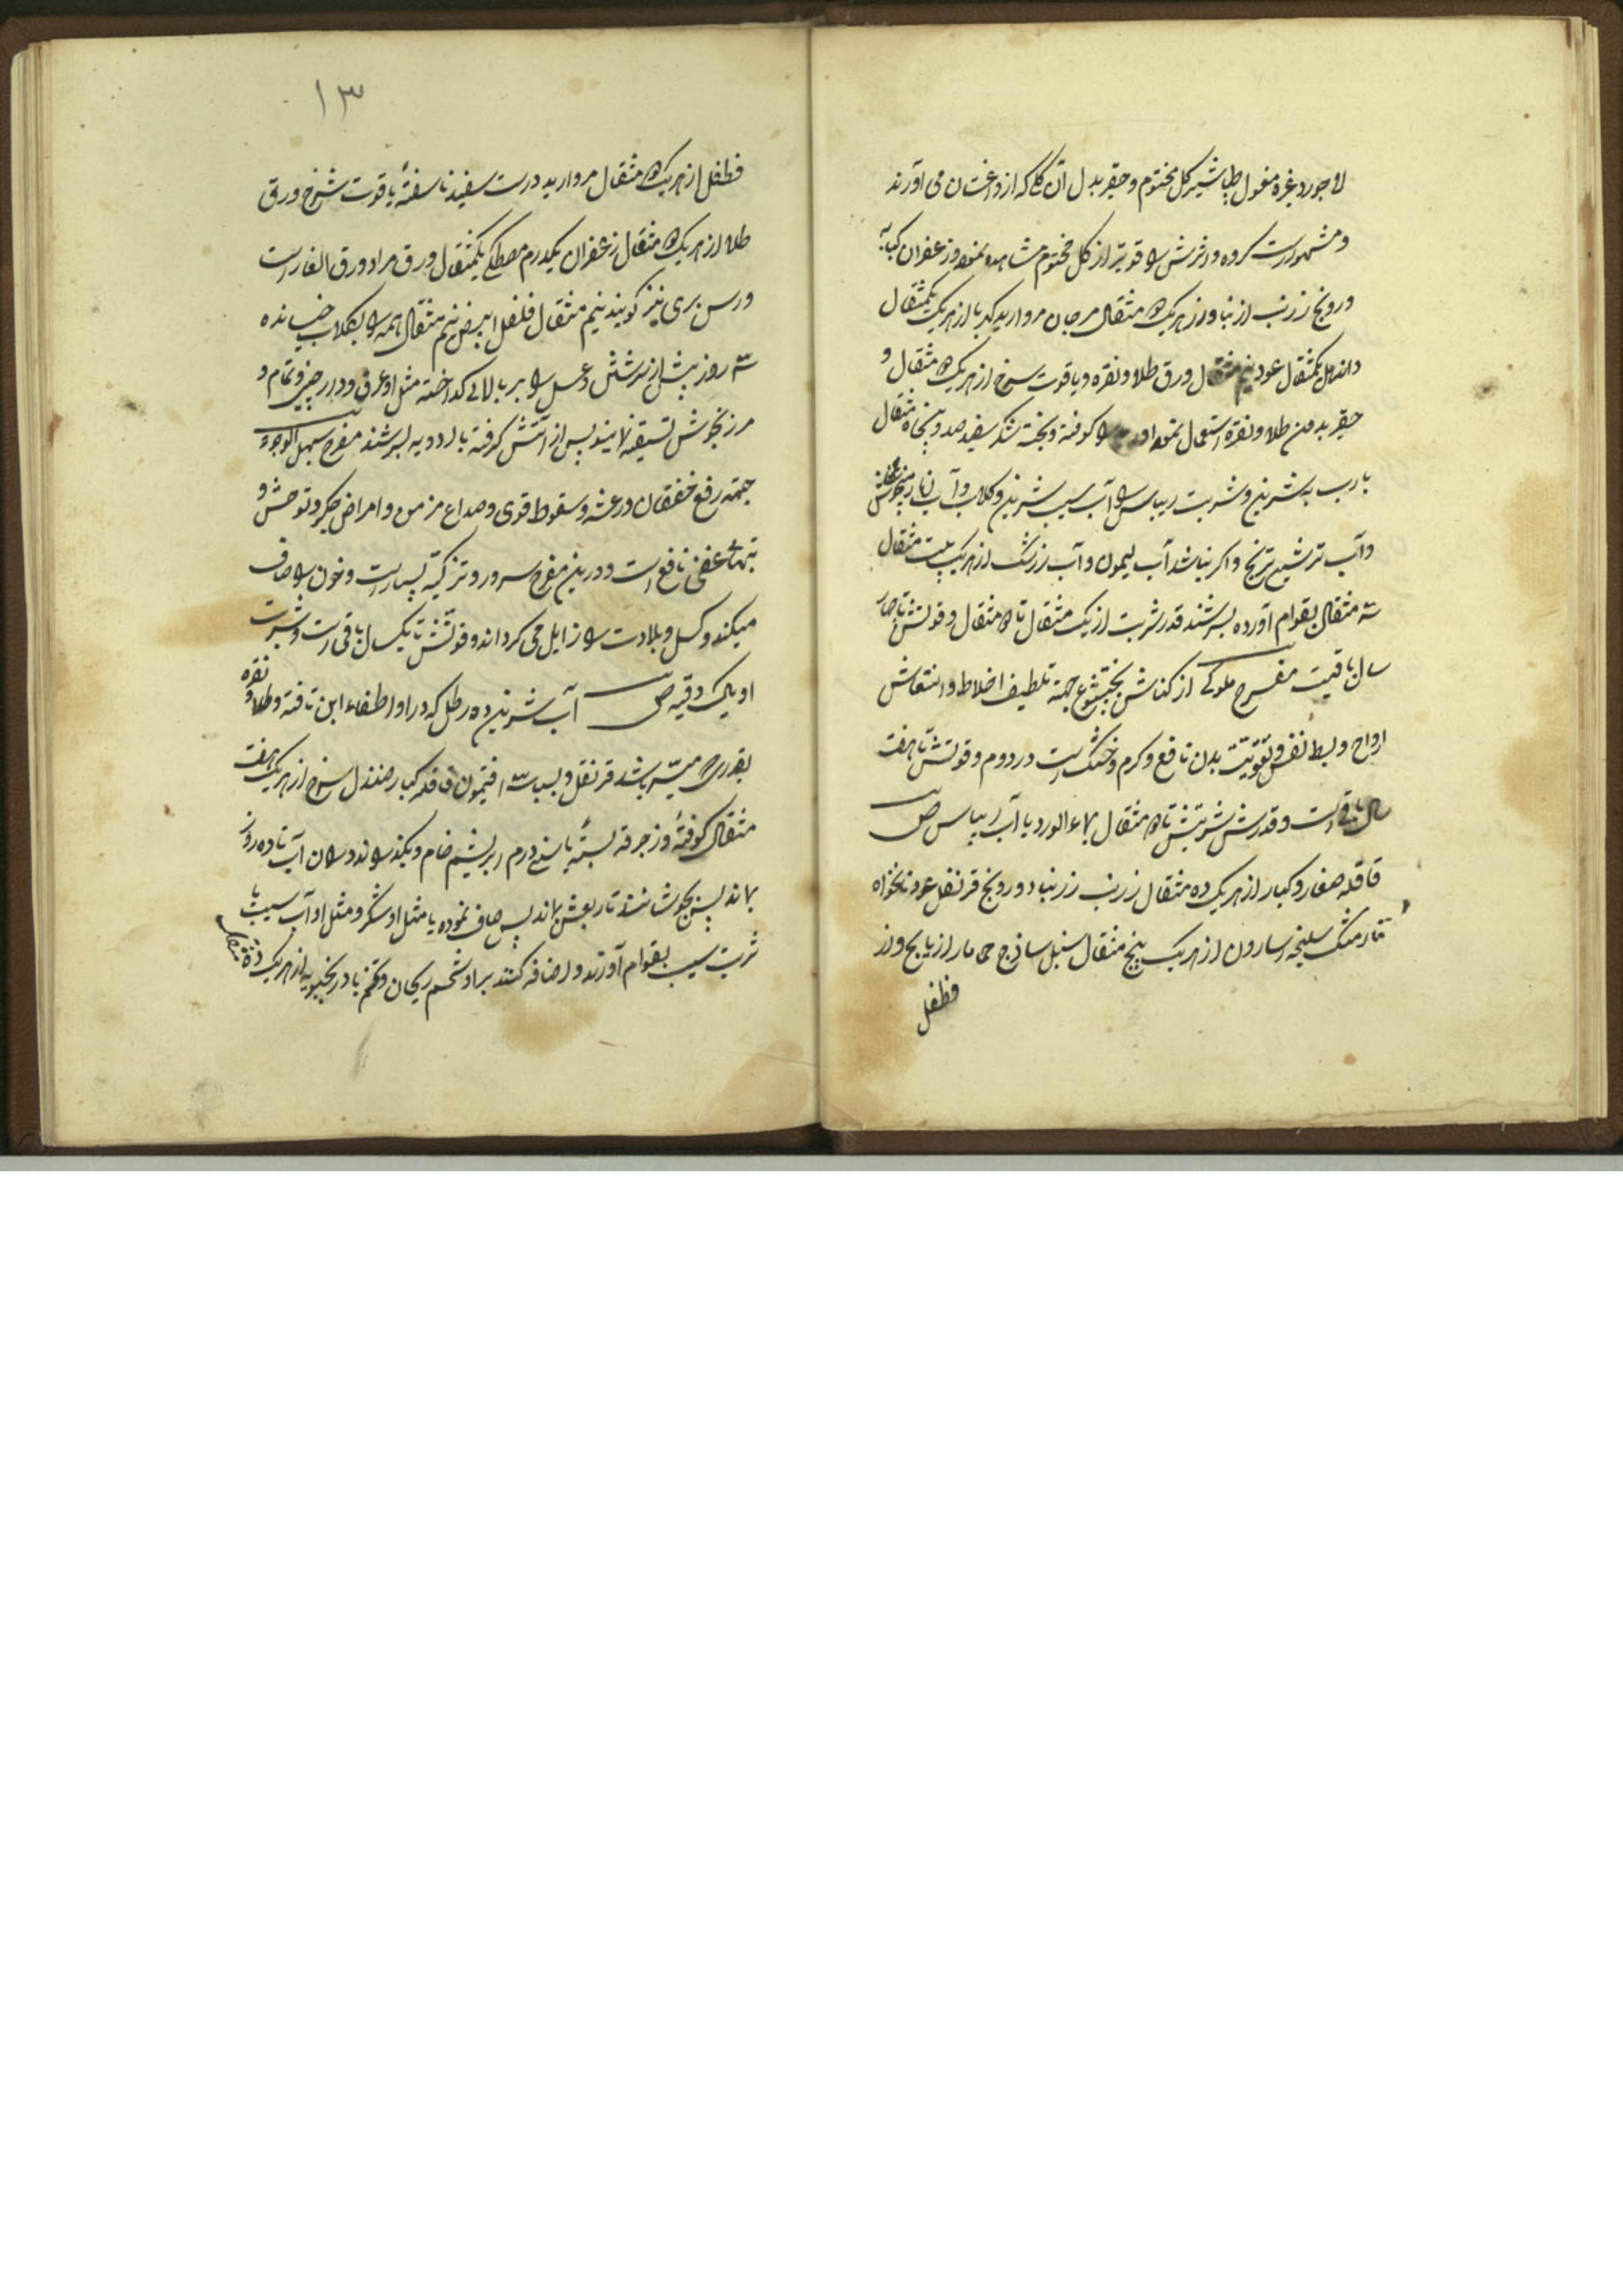 لاجورد غیره مغسول طباشیر گل مختوم و حقیر بدل آن گلی که از داغستان می آورند
و مشهور است کرده و اثرش را قویتر از گل مختوم مشاهده نموده زعفران کبابه
درونج زرنب از نباد از هریک مثقال مرجان مروارید کهربا از هریک یکمثقال
دانه هل یکمثقال عود نیم مثقال ورق طلا و نقره و یاقوت سرخ از هریک مثقال و
حقیر بدون طلا و نقره استعمال نموده کوفته و بیخته شکر سفید صد و پنجاه مثقال
با رب به شیرین و شربت ریباس و آب سیب شیرین و گلاب و آب انار میخوش
و آب ترشی ترنج و اگر نباشد آب لیمون و آب زرشک از هریک بیست مثقال
سه مثقال بقوام آورده بسرشند قدر شربت از یک مثقال تا مثقال و قوتش تا چهار
سال باقیست مفرح ملوکی از کناش بختیشوع جهة تلطیف اخلاط و انتعاش
ارواح و بسط نفس و تقویت بدن نافع و گرم و خشک است در دوم و قوتش تا هفت
سال باقی است و قدر شربتش تا مثقال بماء الورد یا آب ریباس ص
قاقله صغار و کبار از هریک ده مثقال زرنب زرنباد درونج قرنفل عود نانخواه
نارمشک سلیخه اسارون از هریک پنج مثقال سنبل ساذج حماما رازیانج و از
فطفل
۱۳
فطفل از هریک مثقال مروارید درست سفید ناسفته یاقوت سرخ ورق
طلا از هریک مثقال زعفران یکدرم مصطکی یکمثقال ورق مراد ورق الغار است
ورس بری نیز گویند نیم مثقال فلفل ابیض نیم مثقال همه را بگلاب خیسانده
سه روز پیش از سرشتن و عسل را بر بالای گداخته مثل او عرق و دارچینی و تمام و
مرزنجوش تسقیه نمایند پس از آتش گرفته با ادویه بسرشند مفرح سهل الوجود
جهة رفع خفقان و رعشه و سقوط قوی و صداع مزمن و امراض جگر و توحش و
تبهای عفنی نافع است و درین مفرح سرور و تزکیه بسیار است و خون را صاف
میکند و کسل و بلادت را زایل می گرداند و قوتش تا یکسال باقی است و شربت
او یک وقیه ص آب شیرین ده رطل که در او اطفاء آهن تافته و طلا و نقره
بقدری که میسر باشد قرنفل و بسباسه افتیمون قاقله کبار صندل سرخ از هریک هفت
مثقال کوفته و در خرقه بسته با سی درم ابریشم خام و بگذارند در آن آب تا ده روز
بماند پس بجوشانند تا ربعش بماند پس صاف نموده با مثل او شکر و مثل او آب سیب یا
شربت سیب بقوام آورند و اضافه کنند بر او تخم ریحان و تخم بادرنجبویه از هریک ده مثقال